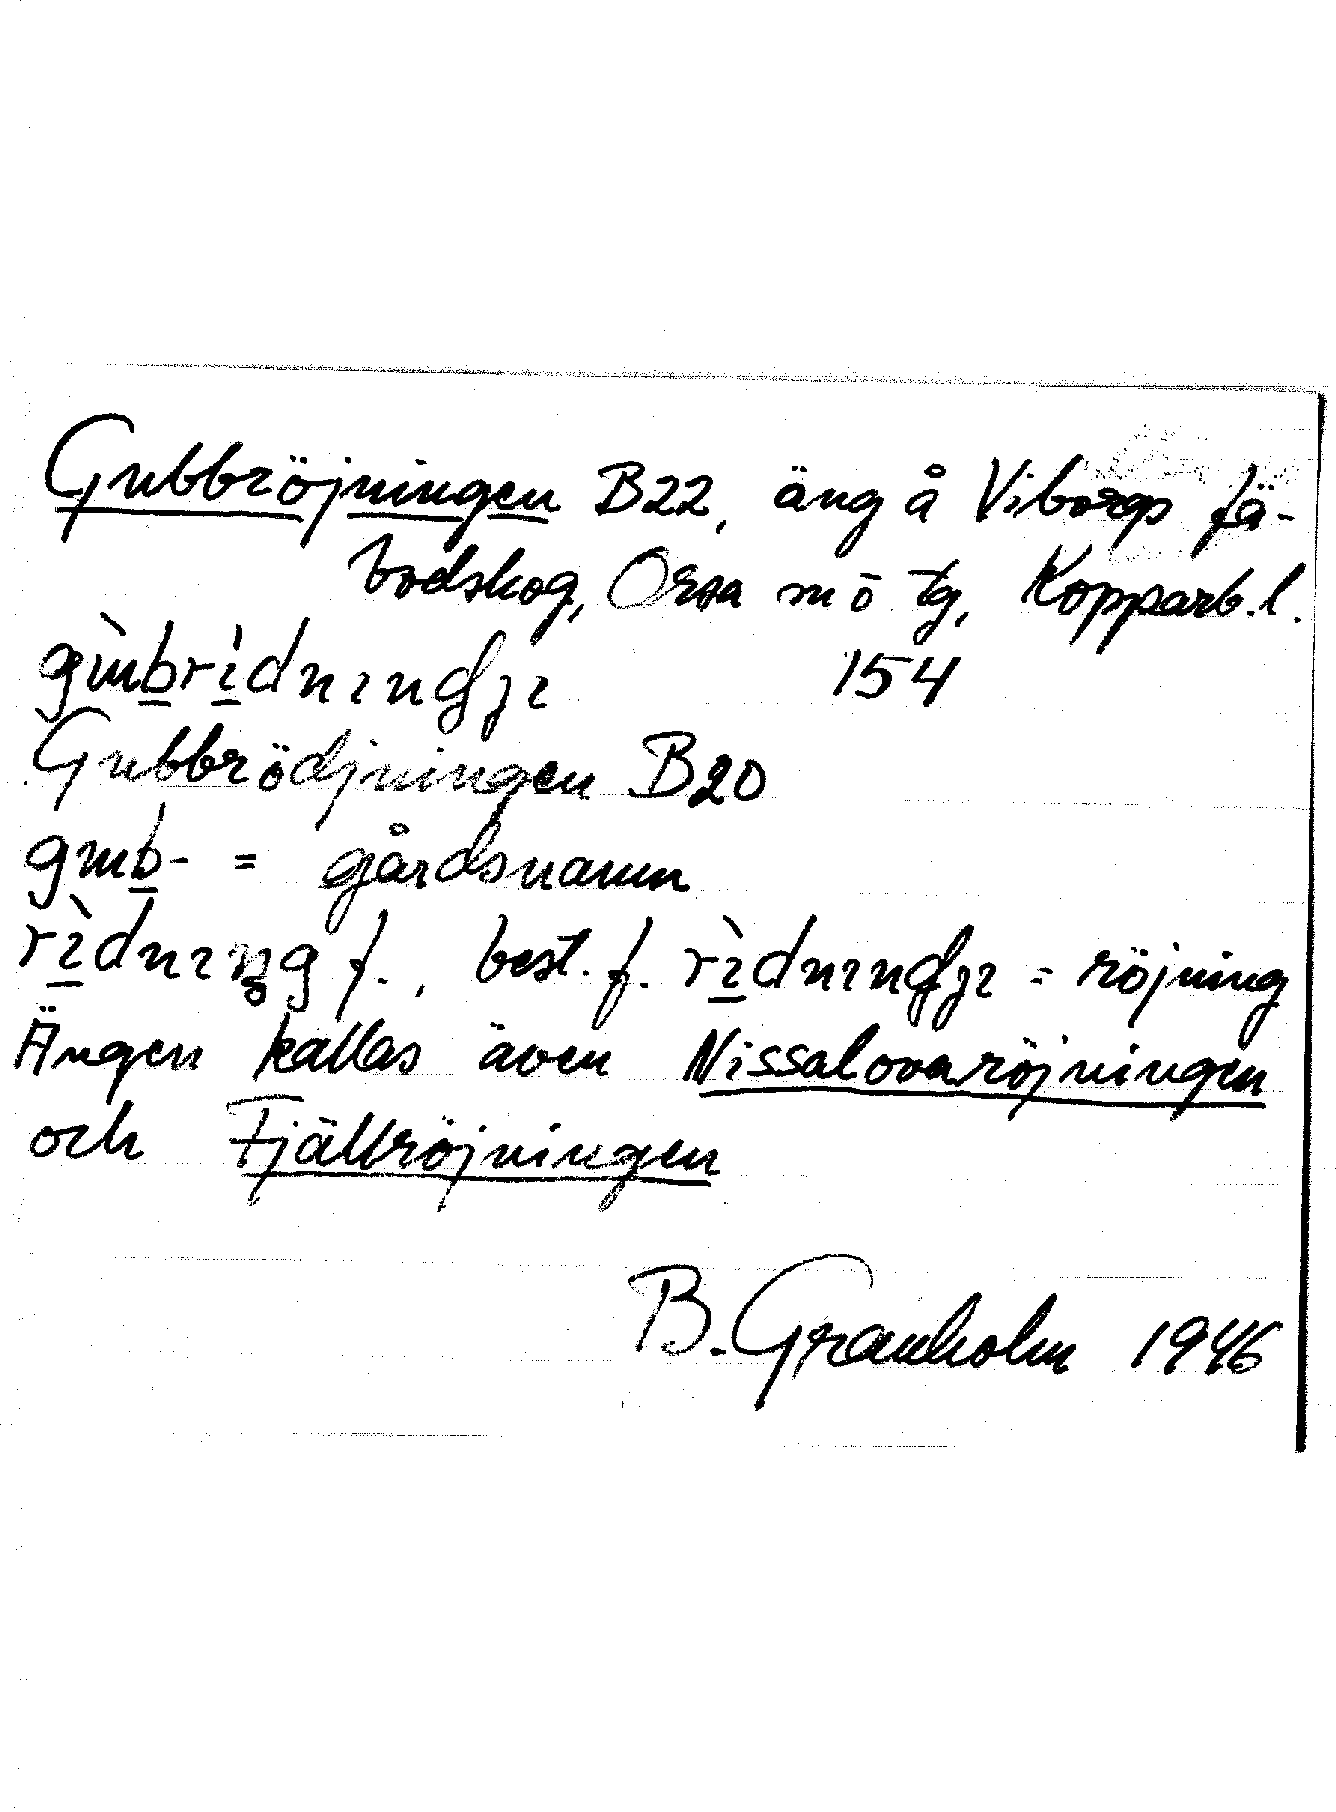 Gubbröjningen B22, äng å Viborgs fä-
bodskog, Orsa m ō tg, Kopparb.l.
154
Gubbrödjningen B20
= gårdsnamn
f., best. f. = röjning
Ängen kallas även Nissalovaröjningen
och Fjällröjningen
B. Granholm 1946